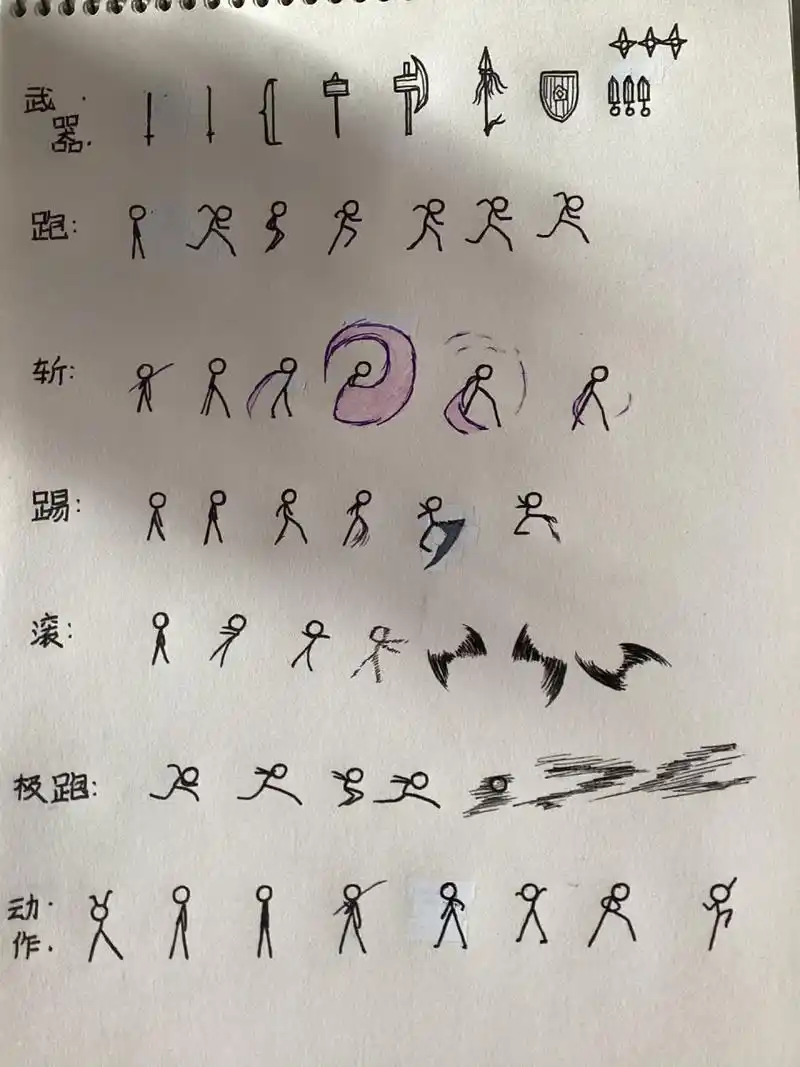 武
器.
跑:
斩:
踢:
滚:
极跑:
动.
作.